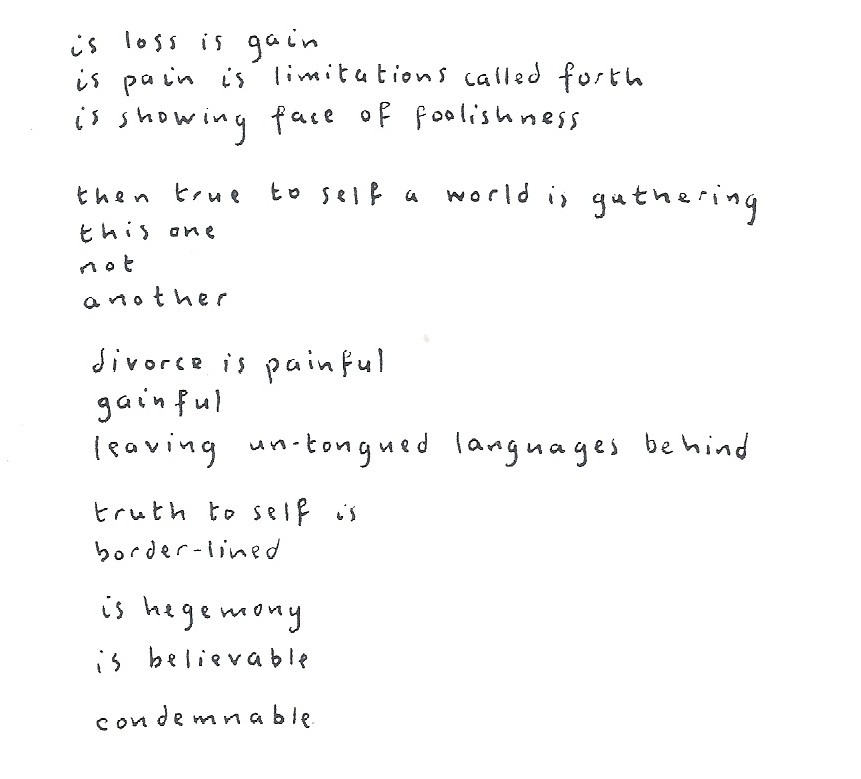 is loss is gain
is pain is limitations called forth
is showing face of foolishness
then true to self a world is gathering
this one
not
another
divorce is painful
gainful
leaving un-tongued languages behind
truth to self is
border-lined
is hegemony
is believable
condemnable